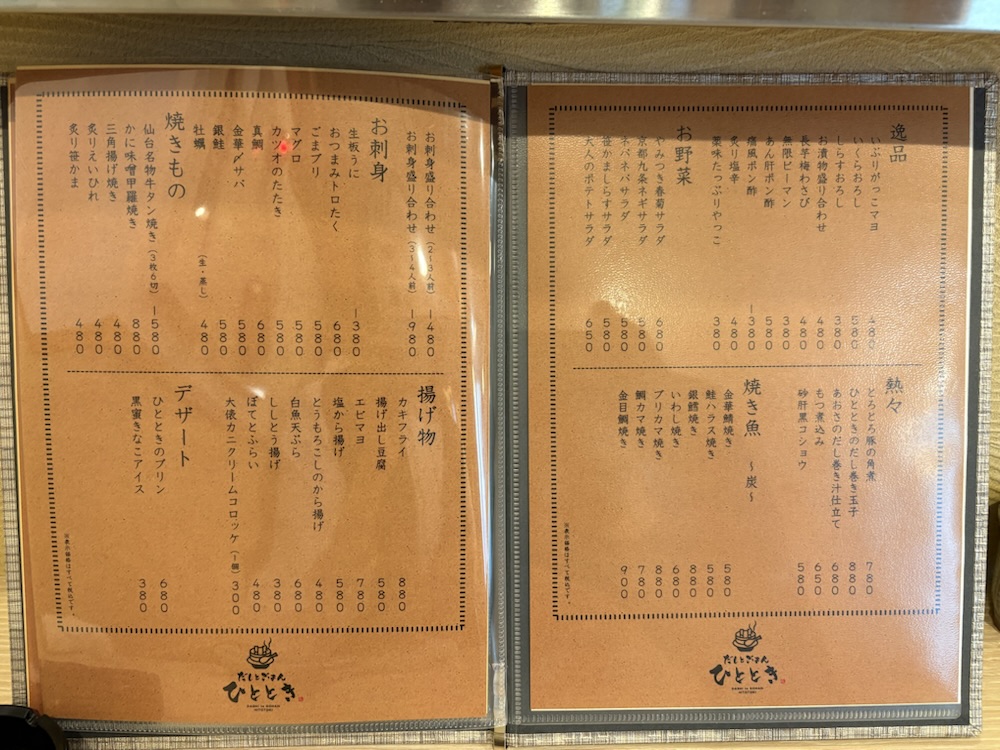 逸品
いぶりがっこマヨ 480
いくらおろし 580
しらすおろし 380
お漬物盛り合わせ 480
長芋梅わさび 480
無限ピーマン 380
あん肝ポン酢 580
痛風ポン酢 1380
炙り塩辛 480
薬味たっぷりやっこ 380
お野菜
やみつき春菊サラダ 680
京都九条ネギサラダ 580
ネバネバサラダ 580
笹かましらすサラダ 580
大人のポテトサラダ 650
熱々
とろとろ豚の角煮 780
ひとときのだし巻き玉子 880
あおさのだし巻き汁仕立て 680
もつ煮込み 650
砂肝黒コショウ 580
焼き魚 〜炭〜
金華鯖焼き 580
鮭ハラス焼き 580
銀鱈焼き 880
いわし焼き 680
ブリカマ焼き 880
鯛カマ焼き 780
金目鯛焼き 900
※表示価格はすべて税込です。
だしとごはん
ひととき
DASHI to GOHAN
HITOTOKI
お刺身盛り合わせ(2〜3人前) 1480
お刺身盛り合わせ(3〜4人前) 1980
お刺身
生板うに 1380
おつまみトロたく 680
ごまブリ 580
マグロ 580
カツオのたたき 580
真鯛 680
金華〆サバ 580
銀鮭 580
牡蠣 (生・蒸し) 480
焼きもの
仙台名物牛タン焼き(3枚6切) 1580
かに味噌甲羅焼き 880
三角揚げ焼き 480
炙りえいひれ 480
炙り笹かま 480
揚げ物
カキフライ 880
揚げ出し豆腐 580
エビマヨ 780
塩から揚げ 580
とうもろこしのから揚げ 480
白魚天ぷら 680
ししとう揚げ 380
ぽてとふらい 480
大俵カニクリームコロッケ(1個) 300
デザート
ひとときのプリン 680
黒蜜きなこアイス 380
※表示価格はすべて税込です。
だしとごはん
ひととき
DASHI to GOHAN
HITOTOKI